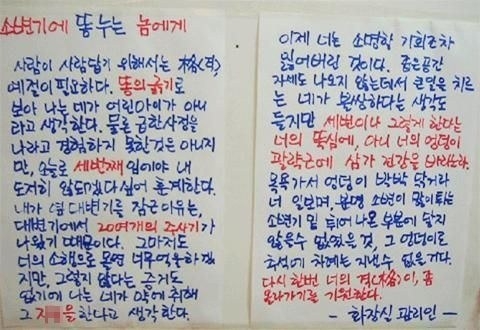 소변기에 똥누는 놈에게
사람이 사람답기 위해서는 격(格),
예절이 필요하다. 똥의 굵기로
보아 나는 네가 어린아이가 아니
라고 생각한다. 물론 급한사정을
나라고 경험하지 못한것은 아니지
만, 오늘로 세번째임에야 내
도저히 안되겠다싶어 훈계한다.
내가 옆 대변기를 잠근이유는,
대변기에서 20여개의 주사기가
나왔기 때문이다. 그마저도
너의 소행으로 몰면 너무억울하겠
지만, 그렇지 않다는 증거도
없기에 나는 네가 약에 취해
그 을 한다고 생각한다.
이제 너는 소명할 기회조차
잃어버린 것이다. 좁은공간
자세도 나오지 않는데서 큰일을 치르
는 네가 불쌍하다는 생각도
들지만 세번이나 그렇게 한다는
너의 뚝심에, 아니 너의 엉덩이
괄약근에 삼가 건강을 바라노라.
목욕가서 엉덩이 박박 닦거라
너 일보며, 분명 소변이 많이튀는
소변기 밑 튀어 나온 부분에 닿지
않을수 없었을 것, 그 엉덩이로
추석에 차례는 지낼수 없을거다.
다시 한번 너의 격(格)이, 좀
올라가기를 기원한다.
- 화장실 관리인 -